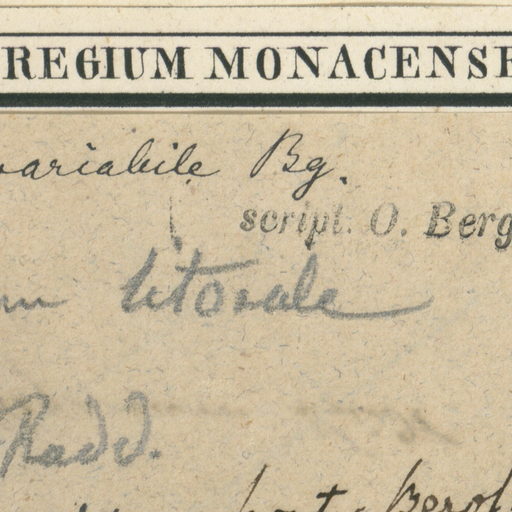 REGIUM MONACENSE
variabile Bg.
script. O. Berg
litorale
Radd.